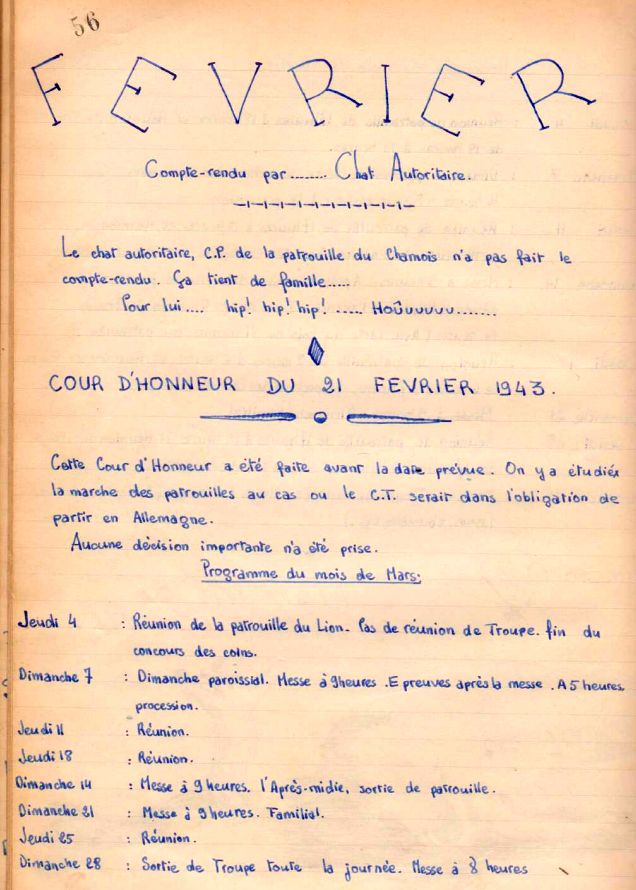 56
FEVRIER
Compte-rendu par........ Chat Autoritaire.
Le chat autoritaire, C.P. de la patrouille du Chamois n'a pas fait le
compte-rendu. Ça tient de famille.....
Pour lui.... hip! hip! hip! ..... Hoûuuuuu.......
COUR D'HONNEUR DU 21 FEVRIER 1943.
Cette Cour d'Honneur a été faite avant la date prévue. On y a étudiée
la marche des patrouilles au cas ou le C.T. serait dans l'obligation de
partir en Allemagne.
Aucune décision importante n'a été prise.
Programme du mois de Mars:
Jeudi 4 : Réunion de la patrouille du Lion. Pas de réunion de Troupe. fin du
concours des coins.
Dimanche 7 : Dimanche paroissial. Messe à 9heures. Epreuves après la messe. A 5 heures
procession.
Jeudi 11 : Réunion.
Jeudi 18 : Réunion.
Dimanche 14 : Messe à 9 heures. l'Après-midie, sortie de patrouille.
Dimanche 21 : Messe à 9heures. Familial.
Jeudi 25 : Réunion.
Dimanche 28 : Sortie de Troupe toute la journée. Messe à 8 heures